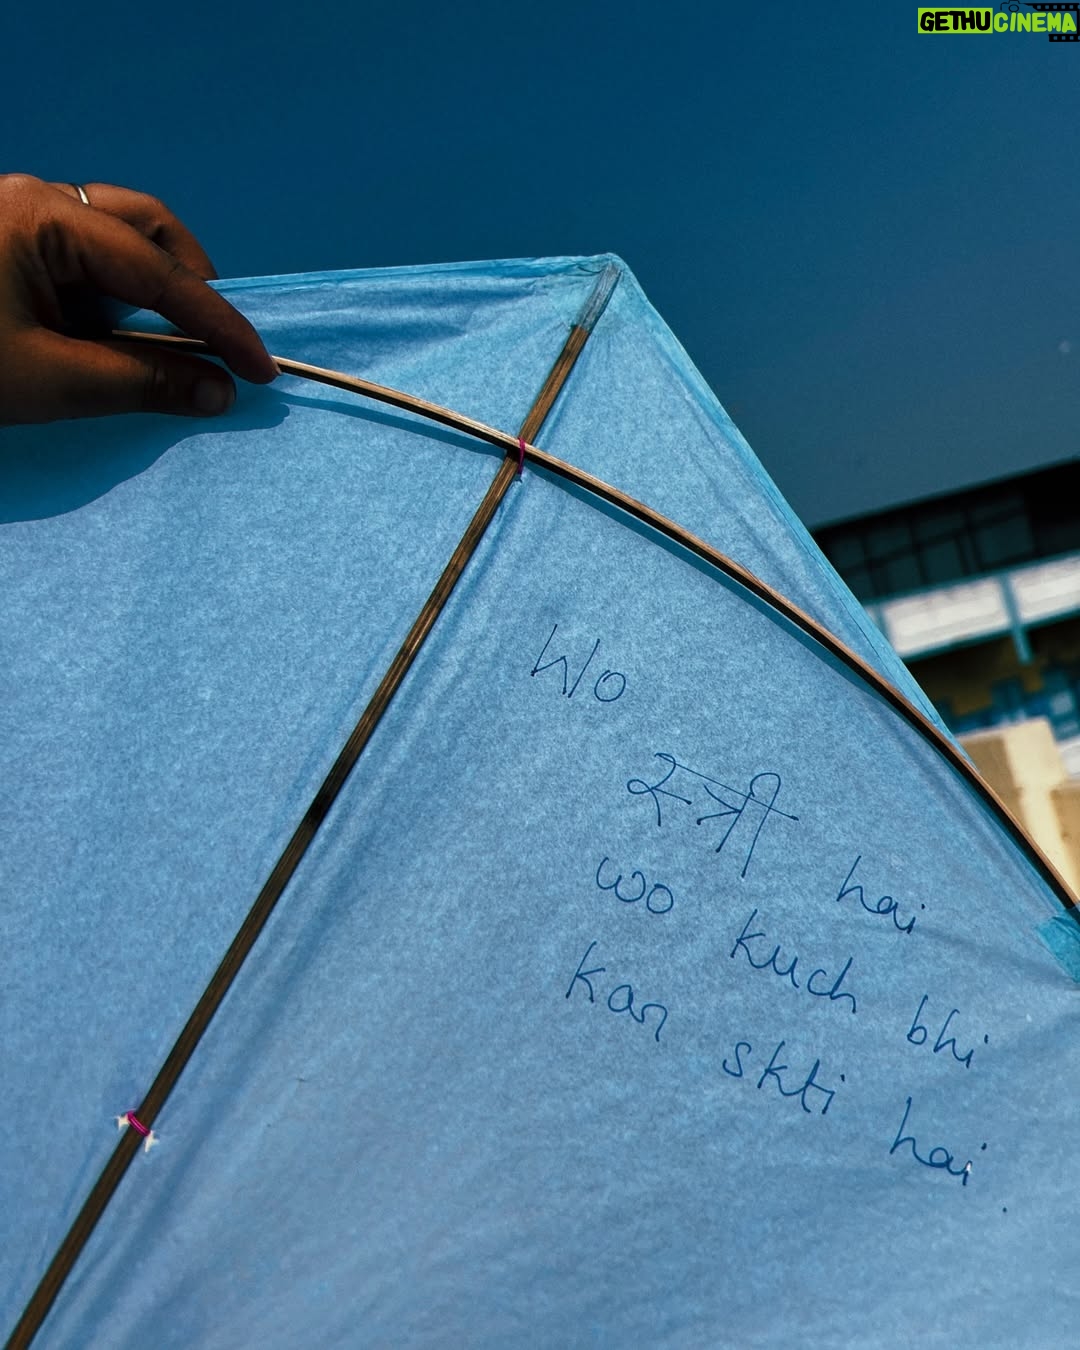 GETHUCINEMA
Wo
स्त्री hai
wo kuch bhi
kar skti hai.